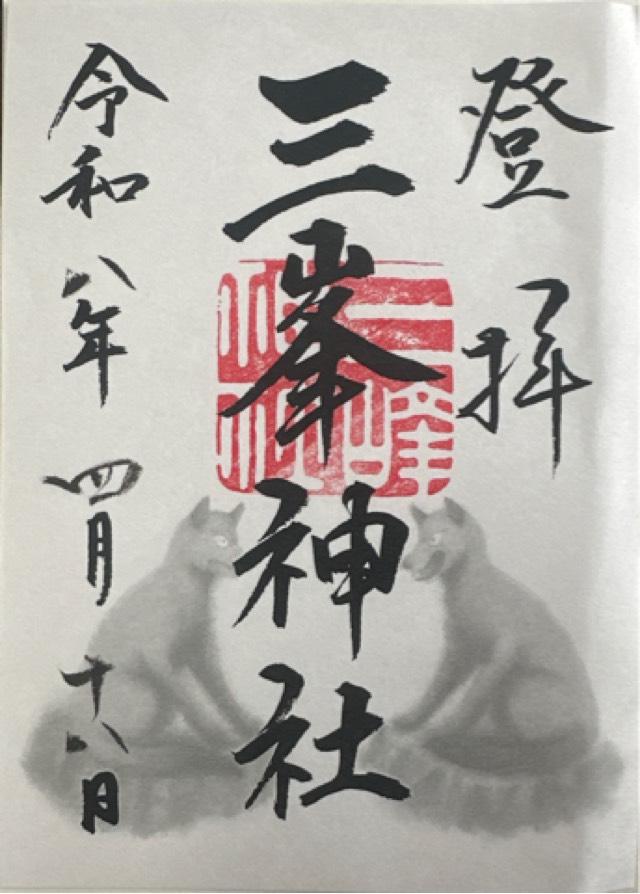 登拝
三峯神社
令和八年四月十八日